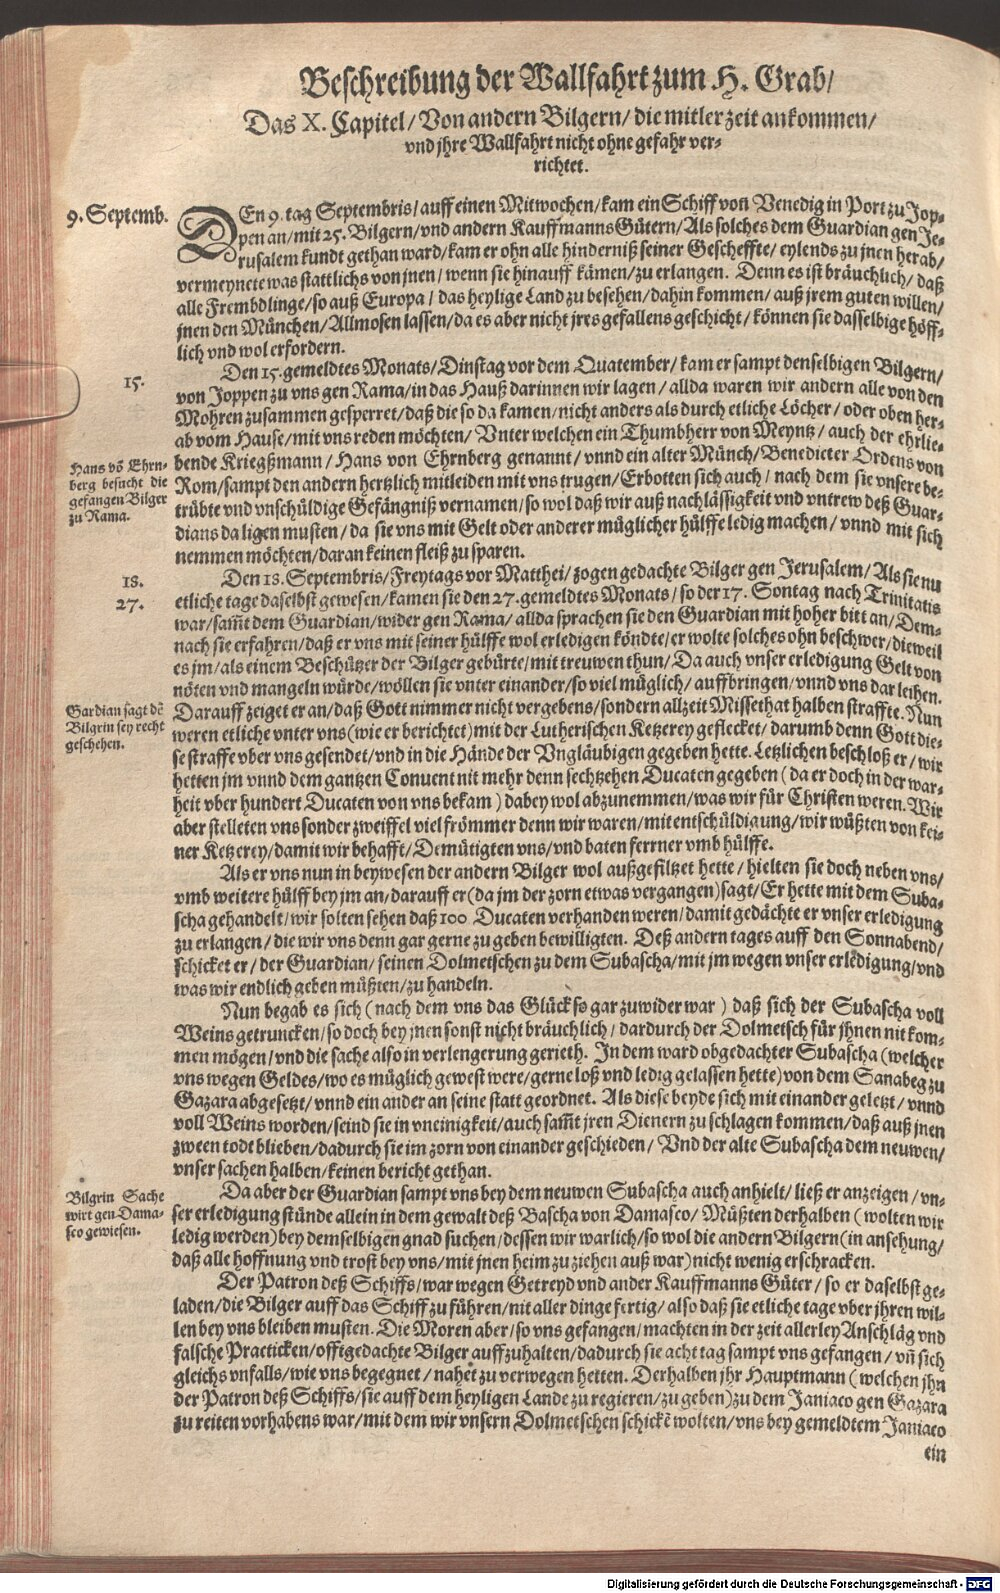 Beschreibung der Wallfahrt zum H. Grab/
Das X. Capitel/ Von andern Bilgern/ die mitler zeit ankommen/
vnd jhre Wallfahrt nicht ohne gefahr ver-
richtet.
9. Septemb.
DEn 9. tag Septembris/ auff einen Mitwochen/ kam ein Schiff von Venedig in Port zu Jop-
pen an/ mit 25. Bilgern/ vnd andern Kauffmanns Gütern/ Als solches dem Guardian gen Je-
rusalem kundt gethan ward/ kam er ohn alle hinderniß seiner Gescheffte/ eylends zu jnen herab/
vermeynete was stattlichs von jnen/ wenn sie hinauff kämen/ zu erlangen. Denn es ist bräuchlich/ daß
alle Frembdlinge/ so auß Europa/ das heylige Land zu besehen/ dahin kommen/ auß jrem guten willen/
jnen den München/ Allmosen lassen/ da es aber nicht jres gefallens geschicht/ können sie dasselbige höff-
lich vnd wol erfordern.
15.
Den 15. gemeldtes Monats/ Dinstag vor dem Quatember/ kam er sampt denselbigen Bilgern/
von Joppen zu vns gen Rama/ in das Hauß darinnen wir lagen/ allda waren wir andern alle von den
Mohren zusammen gesperret/ daß die so da kamen/ nicht anders als durch etliche Löcher/ oder oben her-
ab vom Hause/ mit vns reden möchten/ Vnter welchen ein Thumbherr von Meyntz/ auch der ehrlie-
Hans võ Ehrn-
berg besucht die
gefangen Bilger
zu Rama.
bende Kriegßmann/ Hans von Ehrnberg genannt/ vnnd ein alter Münch/ Benedicter Ordens von
Rom/ sampt den andern hertzlich mitleiden mit vns trugen/ Erbotten sich auch/ nach dem sie vnsere be-
trübte vnd vnschüldige Gefängniß vernamen/ so wol daß wir auß nachlässigkeit vnd vntrew deß Guar-
dians da ligen musten/ da sie vns mit Gelt oder anderer müglicher hülffe ledig machen/ vnnd mit sich
nemmen möchten/ daran keinen fleiß zu sparen.
18.
27.
Den 18. Septembris/ Freytags vor Matthei/ zogen gedachte Bilger gen Jerusalem/ Als sie nu
etliche tage daselbst gewesen/ kamen sie den 27. gemeldtes Monats/ so der 17. Sontag nach Trinitatis
war/ sam̃t dem Guardian/ wider gen Rama/ allda sprachen sie den Guardian mit hoher bitt an/ Dem-
nach sie erfahren/ daß er vns mit seiner hülffe wol erledigen köndte/ er wolte solches ohn beschwer/ dieweil
es jm/ als einem Beschützer der Bilger gebürte/ mit treuwen thun/ Da auch vnser erledigung Gelt von
nöten vnd mangeln würde/ wöllen sie vnter einander/ so viel müglich/ auffbringen/ vnnd vns dar leihen.
Gardian sagt dẽ
Bilgrin sey recht
geschehen.
Darauff zeiget er an/ daß Gott nimmer nicht vergebens/ sondern allzeit Missethat halben straffte. Nun
weren etliche vnter vns (wie er berichtet) mit der Lutherischen Ketzerey geflecket/ darumb denn Gott die-
se straffe vber vns gesendet/ vnd in die Hände der Vngläubigen gegeben hette. Letzlichen beschloß er/ wir
hetten jm vnnd dem gantzen Conuent nit mehr denn sechtzehen Ducaten gegeben (da er doch in der war-
heit vber hundert Ducaten von vns bekam) dabey wol abzunemmen/ was wir für Christen weren. Wir
aber stelleten vns sonder zweiffel viel frömmer denn wir waren/ mit entschüldigung/ wir wüßten von kei-
ner Ketzerey/ damit wir behafft/ Demütigten vns/ vnd baten ferrner vmb hülffe.
Als er vns nun in beywesen der andern Bilger wol außgefiltzet hette/ hielten sie doch neben vns/
vmb weitere hülff bey jm an/ darauff er (da jm der zorn etwas vergangen) sagt/ Er hette mit dem Suba-
scha gehandelt/ wir solten sehen daß 100 Ducaten verhanden weren/ damit gedächte er vnser erledigung
zu erlangen/ die wir vns denn gar gerne zu geben bewilligten. Deß andern tages auff den Sonnabend/
schicket er/ der Guardian/ seinen Dolmetschen zu dem Subascha/ mit jm wegen vnser erledigung/ vnd
was wir endlich geben müßten/ zu handeln.
Nun begab es sich (nach dem vns das Glück so gar zuwider war) daß sich der Subascha voll
Weins getruncken/ so doch bey jnen sonst nicht bräuchlich/ dardurch der Dolmetsch für jhnen nit kom-
men mögen/ vnd die sache also in verlengerung gerieth. In dem ward obgedachter Subascha (welcher
vns wegen Geldes/ wo es müglich gewest were/ gerne loß vnd ledig gelassen hette) von dem Sanabeg zu
Gazara abgesetzt/ vnnd ein ander an seine statt geordnet. Als diese beyde sich mit einander geletzt/ vnnd
voll Weins worden/ seind sie in vneinigkeit/ auch sam̃t jren Dienern zu schlagen kommen/ daß auß jnen
zween todt blieben/ dadurch sie im zorn von einander geschieden/ Vnd der alte Subascha dem neuwen/
vnser sachen halben/ keinen bericht gethan.
Bilgrin Sache
wirt gen Dama-
sco gewiesen.
Da aber der Guardian sampt vns bey dem neuwen Subascha auch anhielt/ ließ er anzeigen/ vn-
ser erledigung stünde allein in dem gewalt deß Bascha von Damasco/ Müßten derhalben (wolten wir
ledig werden) bey demselbigen gnad suchen/ dessen wir warlich/ so wol die andern Bilgern (in ansehung/
daß alle hoffnung vnd trost bey vns/ mit jnen heim zu ziehen auß war) nicht wenig erschracken.
Der Patron deß Schiffs/ war wegen Getreyd vnd ander Kauffmanns Güter/ so er daselbst ge-
laden/ die Bilger auff das Schiff zu führen/ nit aller dinge fertig/ also daß sie etliche tage vber jhren wil-
len bey vns bleiben musten. Die Moren aber/ so vns gefangen/ machten in der zeit allerley Anschläg vnd
falsche Practicken/ offtgedachte Bilger auffzuhalten/ dadurch sie acht tag sampt vns gefangen/ vñ sich
gleichs vnfalls/ wie vns begegnet/ nahet zu verwegen hetten. Derhalben jhr Hauptmann (welchen jhn
der Patron deß Schiffs/ sie auff dem heyligen Lande zu regieren/ zu geben) zu dem Janiaco gen Gazara
zu reiten vorhabens war/ mit dem wir vnsern Dolmetschen schickẽ wolten/ vns bey gemeldtem Janiaco
ein
Digitalisierung gefördert durch die Deutsche Forschungsgemeinschaft - DFG